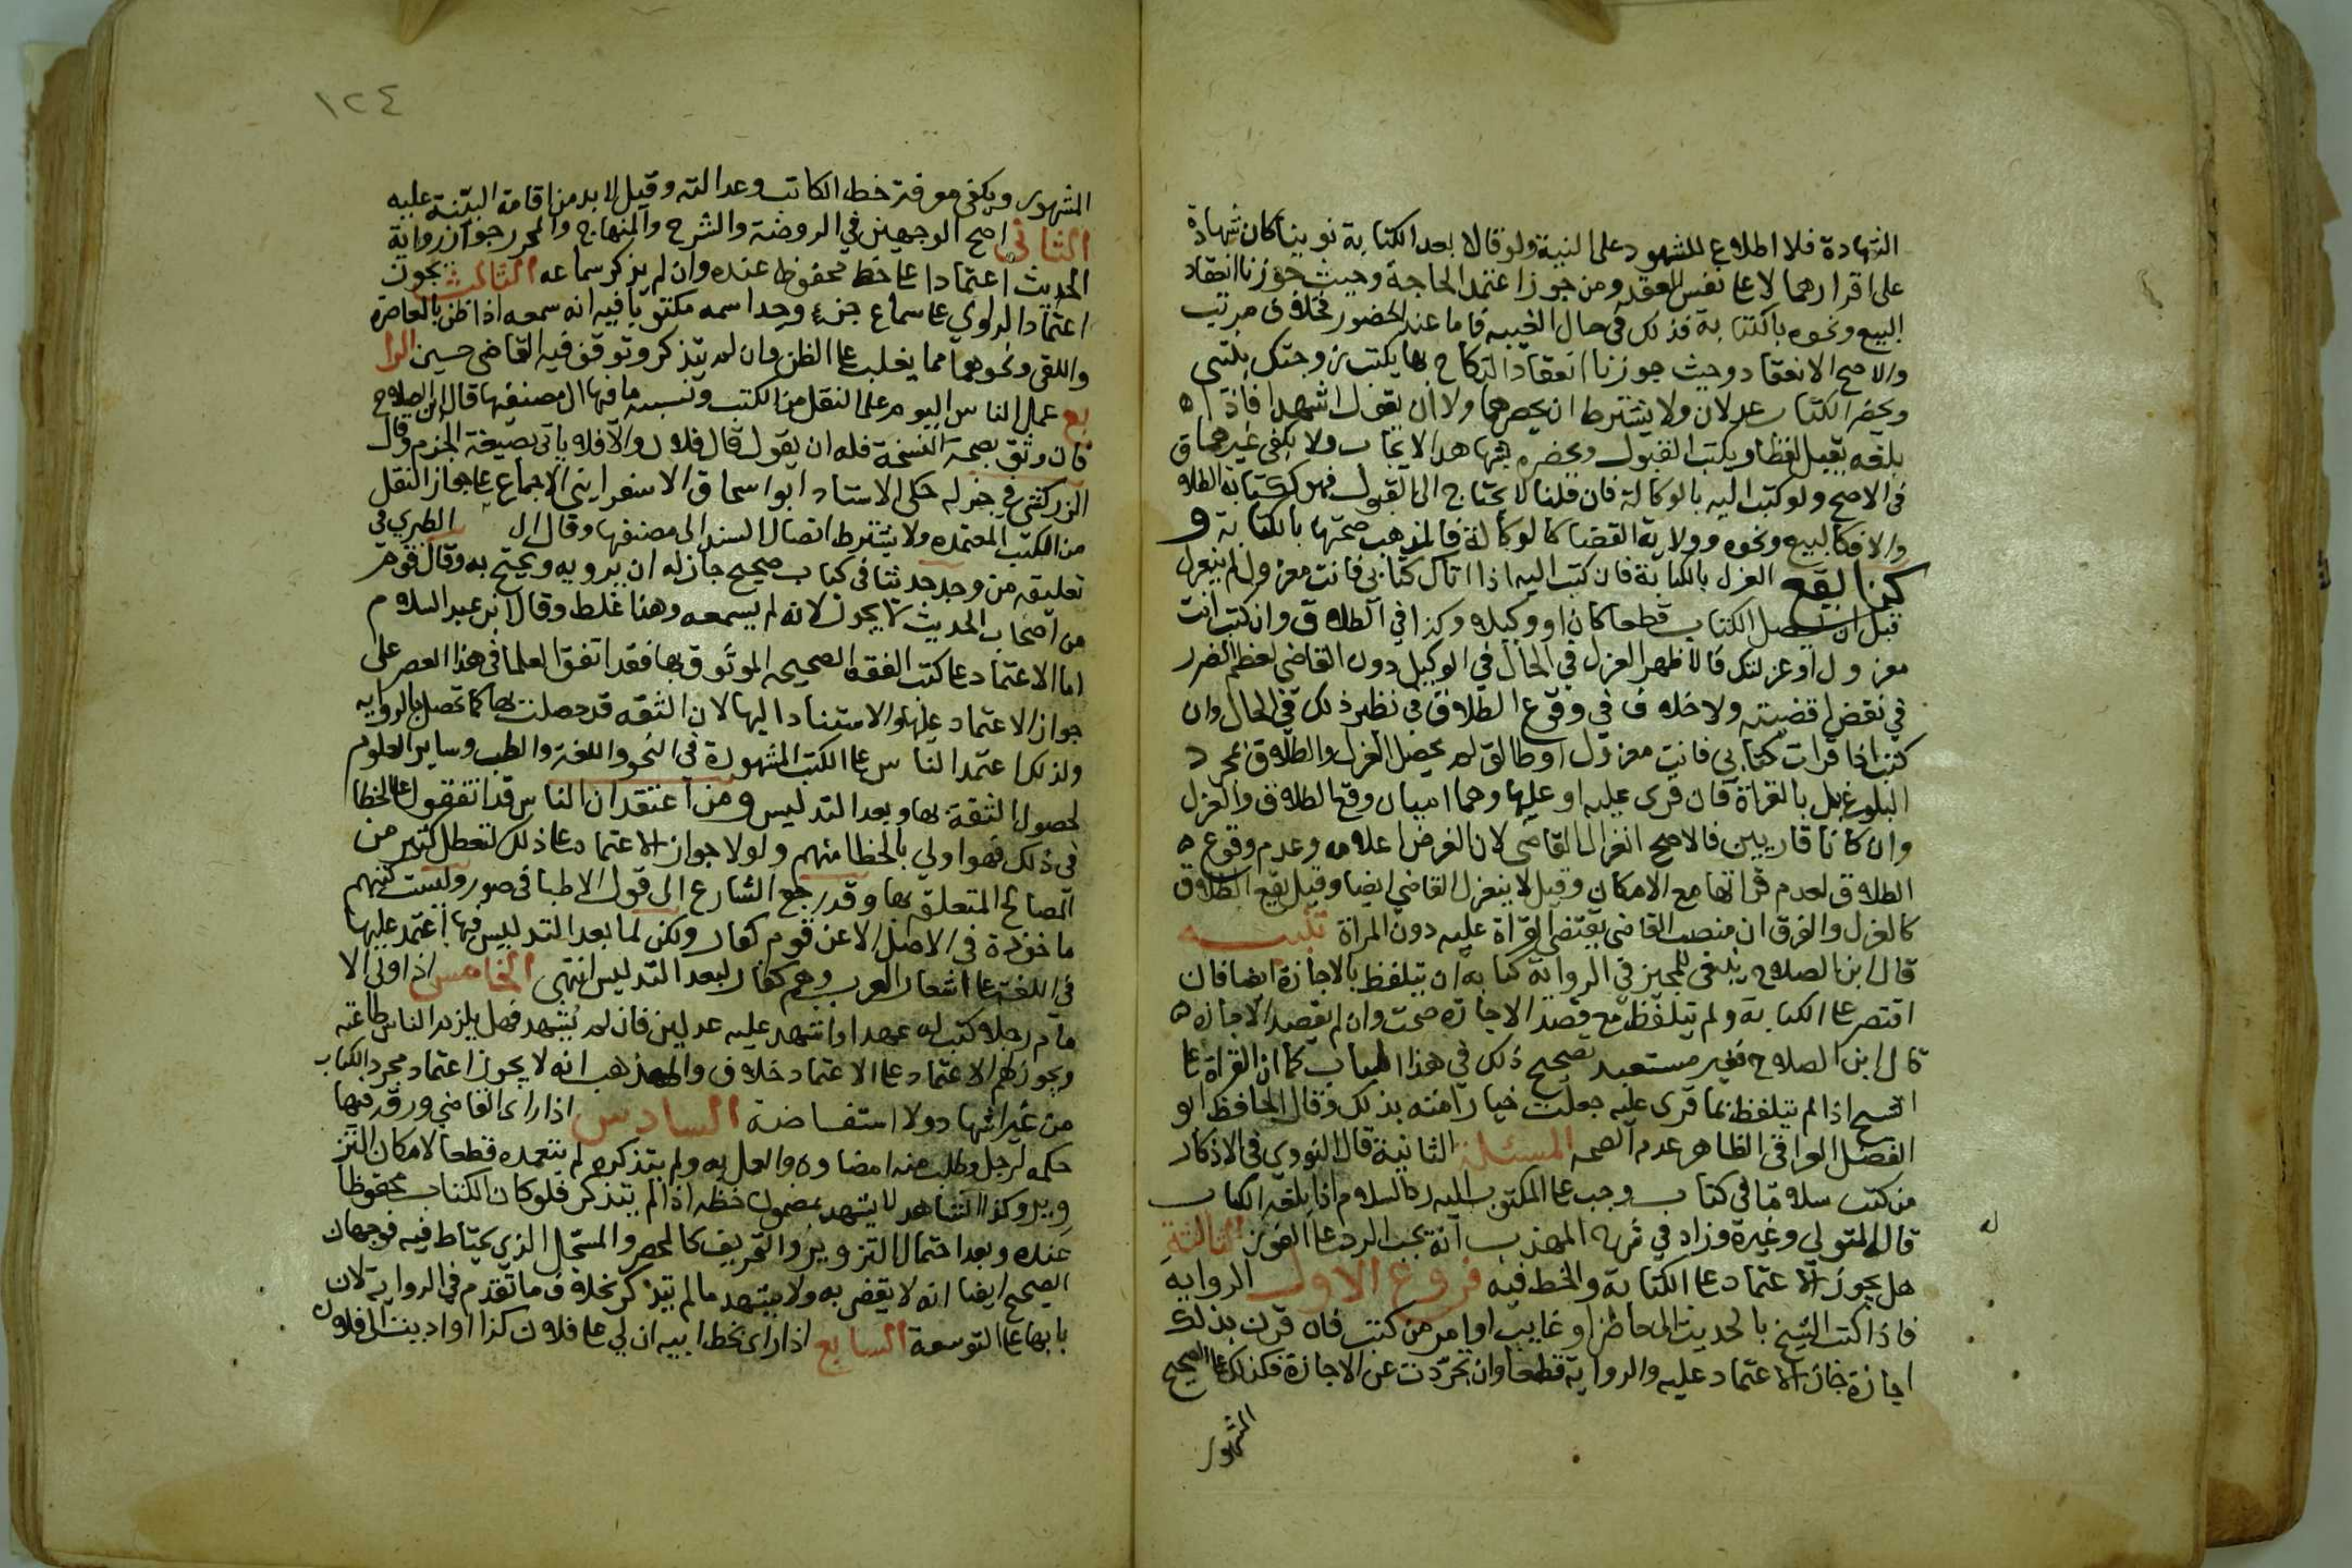 الشهادة فلا اطلاع للشهود على النية ولو قالا بعد الكتابة نوينا كان شهادة
على اقرارهما لا على نفس العقد ومن جوز اعتمد الحاجة وحيث جوزنا انعقاد
البيع ونحوه بالكتابة فذلك في حال الغيبه فاما عند الحضور فخلاف مرتب
والاصح الانعقاد وحيث جوزنا انعقاد النكاح بها يكتب زوجتك بنتي
ويحضر الكتاب عدلان ولا يشترط ان يحضرهما ولا ان يقول اشهدا فاذا ه
بلغه يقبل لفظا او يكتب القبول ويحضره شاهدا الايجاب ولا يكفي غيرهما ق
في الاصح ولو كتب اليه بالوكالة فان قلنا لا يحتاج الى القبول فهو ككتابة الطلا
والا فكالبيع ونحوه وولاية القضا كالوكالة فالمذهب صحتها بالكتابة و
كذا يقع العزل بالكتابة فان كتب اليه اذا اتاك كتابي فانت معزول لم ينعزل
قبل ان يصل الكتاب قطعا كان او وكيلا وكذا في الطلاق وان كتب انت
معزول او عزلتك فالاظهر العزل في الحال في الوكيل دون القاضي لعظم الضرر
في نقض اقضيته ولا خلاف في وقوع الطلاق في نظير ذلك في الحال وان
كتب اذا قرات كتابي فانت معزول او طالق لم يحصل العزل والطلاق بمجرد
البلوغ بل بالقراة فان قرى عليه او عليها وهما اميان وقع الطلاق والعزل
وان كانا قاريين فالاصح انعزال القاضي لان الغرض اعلامه وعدم وقوع ه
الطلاق لعدم قراتها مع الامكان وقيل لا ينعزل القاضي ايضا وقيل يقع الطلاق
كالعزل والفرق ان منصب القاضي يقتضي القراة عليه دون المراة تنبيه
قال ابن الصلاح ينبغي للمجيز في الرواية كتابة ان يتلفظ بالاجازة ايضا فان
اقتصر على الكتابة ولم يتلفظ مع قصد الاجازه صحت وان لم يقصد الاجازه ه
قال ابن الصلاح فغير مستبعد تصحيح ذلك في هذا الباب كما ان القراة على
الشيخ اذا لم يتلفظ بما قرى عليه جعلت خيارا منه بذلك وقال الحافظ ابو
الفضل العراقي الظاهر عدم الصحه المسئلة الثانية قال النووي في الاذكار
من كتب سلاما في كتاب وجب على المكتوب اليه رد السلام اذا بلغه الكتاب
قاله المتولي وغيره وزاد في شرح المهذب انه يجب الرد على الفور الثالثة
هل يجوز الاعتماد على الكتابة والخط فيه فروع الاول الروايه
فاذا كتب الشيخ بالحديث الى حاضر او غايب او امر من كتب فان قرن بذلك
اجازة جاز الاعتماد عليه والرواية قطعا وان تجردت عن الاجازة فكذلك على الصحيح
المشهور
١٢٤
المشهور ويكفي معرفة خط الكاتب وعدالته وقيل لا بد من اقامة البينة عليه
الثاني اصح الوجهين في الروضة والشرح والمنهاج والمحرر جواز رواية
الحديث اعتمادا على خط محفوظ عنده وان لم يذكر سماعه الثالث يجوز
اعتماد الراوي على سماع جزء وجد اسمه مكتوبا فيه انه سمعه اذا ظن بالمعاصره
واللقى ونحوهما مما يغلب على الظن وان لم يتذكر وتوقف فيه القاضي حسين الرا
بع عمل الناس اليوم على النقل من الكتب ونسبة ما فيها الى مصنفيها قال ابن الصلاح
فان وثق بصحة النسخة فله ان يقول قال فلان والا فلا ياتي بصيغة الجزم وقال
الزركشي في جزء له حكى الاستاد ابو اسحاق الاسفرايني الاجماع على جواز النقل
من الكتب المعتمده ولا يشترط اتصال السند الى مصنفها وقال ال الطبري في
تعليقه من وجد حديثا في كتاب صحيح جاز له ان يرويه ويحتج به وقال قوم
من اصحاب الحديث لا يجوز لانه لم يسمعه وهذا غلط وقال ابن عبد السلام
اما الاعتماد على كتب الفقه الصحيحه الموثوق بها فقد اتفق العلما في هذا العصر على
جواز الاعتماد عليها والاستناد اليها لان الثقه قد حصلت بها كما تحصل بالروايه
ولذلك اعتمد الناس على الكتب المشهورة في النحو واللغة والطب وساير العلوم
لحصول الثقة بها وبعد التدليس ومن اعتقد ان الناس قد اتفقوا على الخطا
في ذلك فهو اولي بالخطا منهم ولولا جواز الاعتماد على ذلك لتعطل كثير من
المصالح المتعلقه بها وقد رجع الشارع الى قول الاطبا في صور وليست كتبهم
ماخوذة في الاصل الا عن قوم كفار ولكن لما بعد التدليس فيها اعتمد عليها
في اللغة على اشعار العرب وهم كفار لبعد التدليس انتهى الخامس اذا ولى الا
مام رجلا كتب له عهدا واشهد عليه عدلين فان لم يشهد فهل يلزم الناس طاعته
ويجوز لهم الاعتماد على الاعتماد خلاف والمذهب انه لا يجوز اعتماد مجرد الكتاب
من غير اشهاد ولا استفاضة السادس اذا راى القاضي ورقة فيها
حكمه لرجل وطلب منه امضاوه والعمل به ولم يتذكره لم يتعمده قطعا لامكان التز
وير وكذا الشاهد لا يشهد بمضمون خطه اذا لم يتذكر فلو كان الكتاب محفوظا
عنده وبعد احتمال التزوير والتحريف كالمحضر والسجل الذي يحتاط فيه فوجهان
الصحيح ايضا انه لا يقضى به ولا يشهد ما لم يتذكر بخلاف ما تقدم في الرواية لان
بابها على التوسعة السابع اذا راى بخط ابيه ان لي على فلان كذا او اديت الى فلان